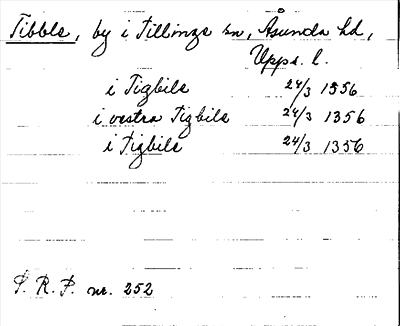 Tibble, by i Tillinge sn, Åsunda hd,
Upps. l.
i Tigbils 24/3 1356
i vestra Tigbils 24/3 1356
i Tigbils 24/3 1356
S. R. P. nr. 252